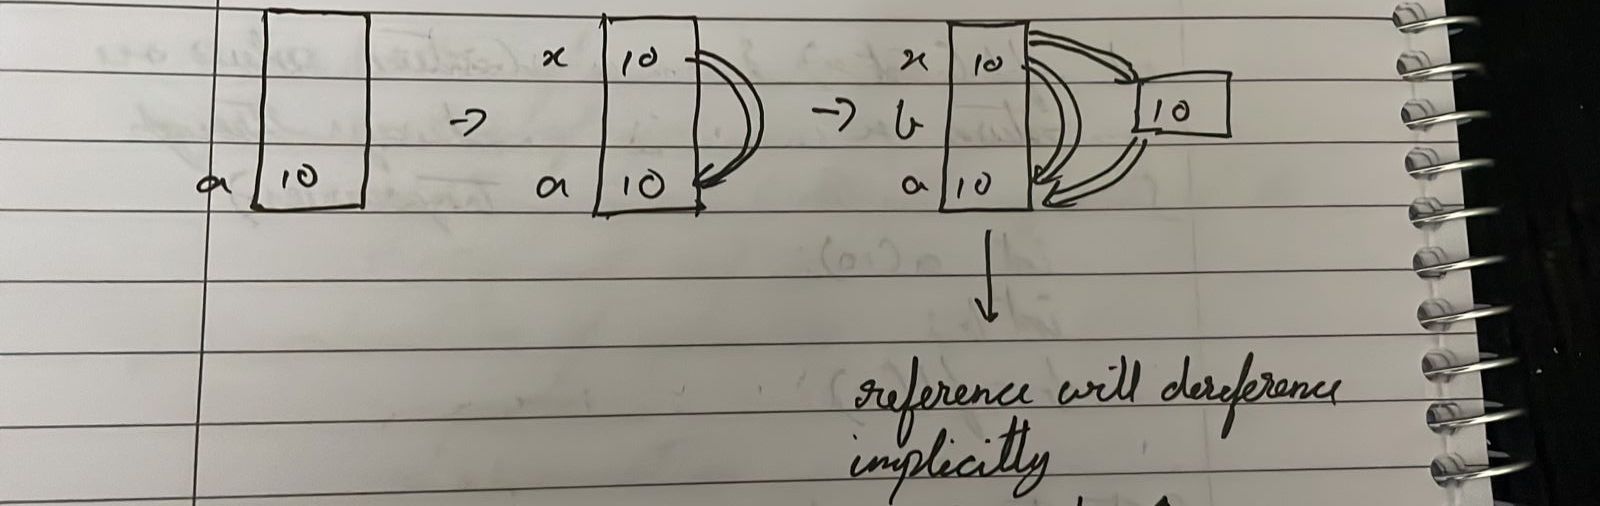 x 10 → x 10 10
→ b
a 10 a 10 a 10
reference will dereference
implicitly